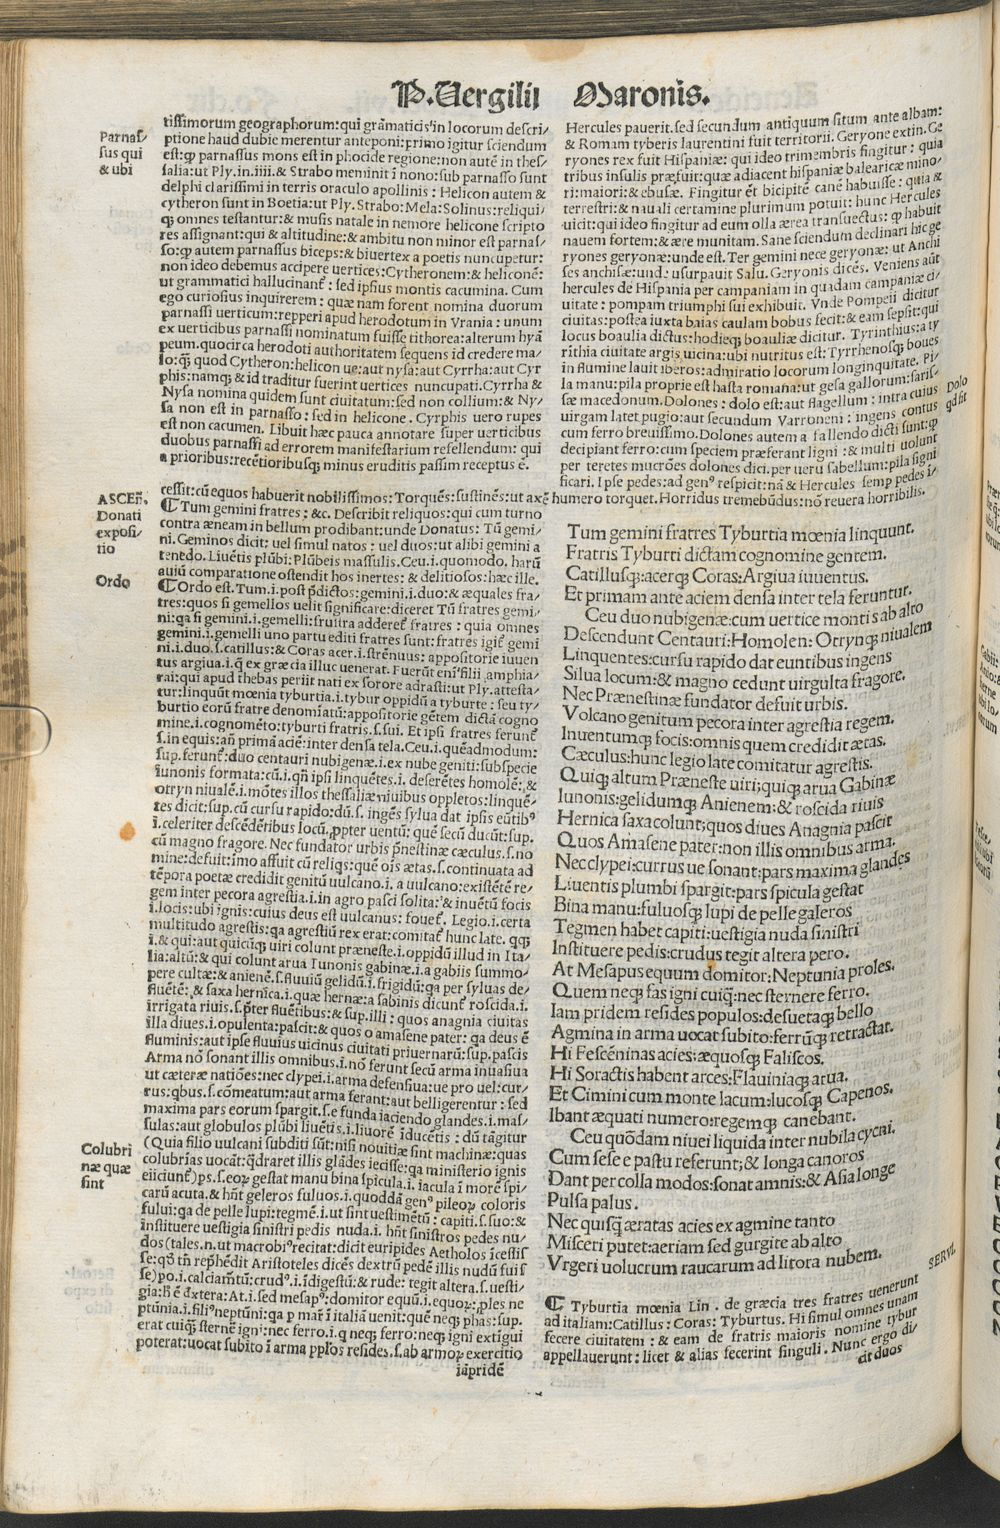 P.Vergilii Maronis.
Parnas/
sus qui
& ubi
tissimorum geographorum:qui grãmaticis'in locorum descri/
ptione haud dubie merentur anteponi:primo igitur sciendum
est:ꝙ parnassus mons est in phocide regione:non autẽ in thes/
salia:ut Ply.in.iiii.& Strabo meminit ĩ nono:sub parnasso sunt
delphi clarissimi in terris oraculo apollinis : Helicon autem &
cytheron sunt in Boetia:ut Ply.Strabo:Mela:Solinus:reliqui/
ꝗ; omnes testantur:& musis natale in nemore helicone scripto
res assignant:qui & altitudine:& ambitu non minor est parnas/
so:ꝙ autem parnassus biceps:& biuertex a poetis nuncupetur:
non ideo debemus accipere uertices:Cytheronem:& heliconẽ:
ut grammatici hallucinant᷒ : sed ipsius montis cacumina. Cum
ego curiosius inquirerem : quæ nam forent nomina duorum
parnassi uerticum:repperi apud herodotum in Vrania : unum
ex uerticibus parnassi nominatum fuisse tithorea:alterum hyã
peum.quocirca herodoti authoritatem sequens id credere ma/
lo:ꝗ; quod Cytheron:helicon ue:aut nysa:aut Cyrrha:aut Cyr
phis:namꝗ; & id traditur fuerint uertices nuncupati.Cyrrha &
Nysa nomina quidem sunt ciuitatum:sed non collium:& Ny/
sa non est in parnasso : sed in helicone . Cyrphis uero rupes
est non cacumen. Libuit hæc pauca annotare super uerticibus
duobus parnassi ad errorem manifestarium refellendum: qui
a prioribus:recẽtioribusꝗ; minus eruditis passim receptus ẽ.
Hercules pauerit.sed secundum antiquum situm ante albam:
& Romam tyberis laurentini fuit territorii. Geryone extin.Ge
ryones rex fuit Hispaniæ: qui ideo trimembris fingitur : quia
tribus insulis præfuit:quæ adiacent hispaniæ balearicæ mino/
ri:maiori:& ebusæ. Fingitur ẽt bicipitẽ canẽ habuisse : quia &
terrestri:& nauali certamine plurimum potuit: hunc Hercules
uicit:qui ideo fingitur ad eum olla ærea transuectus: ꝙ habuit
nauem fortem:& ære munitam. Sane sciendum declinari hic ge
ryones geryonæ:unde est. Ter gemini nece geryonæ: ut Anchi
ses anchisæ:unde usurpauit Salu. Geryonis dicẽs. Veniens aũt
hercules de Hispania per campaniam in quadam campaniæ ci/
uitate : pompam triumphi sui exhibuit. Vnde Pompeii dicitur
ciuitas:postea iuxta baias caulam bobus fecit:& eam sepsit:qui
locus boaulia dictus:hodieꝗ; boauliæ dicitur. Tyrinthius:a ty
rinthia ciuitate argis uicina:ubi nutritus est:Tyrrhenosꝗ; boues
in flumine lauit iberos:admiratio locorum longinquitate. Pi/
la manu:pila proprie est hasta romana:ut gesa gallorum:saris/
sæ macedonum.Dolones : dolo est:aut flagellum : intra cuius
uirgam latet pugio:aut secundum Varronem : ingens contus
cum ferro breuissimo.Dolones autem a fallendo dicti sunt:ꝙ
decipiant ferro:cum speciem præferant ligni : & multi uolunt
per teretes mucrões dolones dici.per ueru sabellum:pila signi
ficari. Ipse pedes:ad genꝰ respicit:nã & Hercules semp pedes ĩ/
Dolo
qd sit
cessit:cũ equos habuerit nobilissimos: Torquẽs:sustinẽs:ut axẽ humero torquet. Horridus tremebũdus:nõ reuera horribilis.
ASCEÑ.
Donati
exposi/
tio
Ordo
¶Tum gemini fratres : &c. Describit reliquos:qui cum turno
contra æneam in bellum prodibant:unde Donatus: Tũ gemi/
ni.Geminos dicit: uel simul natos : uel duos:ut alibi gemini a
tenedo. Liuẽtis plũbi:Plũbeis massulis.Ceu.i.quomodo. harũ
auiũ comparatione ostendit hos inertes: & delitiosos:hæc ille.
¶Ordo est.Tum.i.post p̃dictos:gemini.i.duo:& æquales fra/
tres:quos si gemellos uelit significare:diceret Tũ fratres gemi/
ni:ꝗa si gemini.i.gemelli:frustra adderet᷒ fratres : quia omnes
gemini.i.gemelli uno partu editi fratres sunt:fratres igit᷒ gemi
ni.i.duo.s.catillus:& Coras acer.i.strẽnuus: appositorie iuuen
tus argiua.i.ꝙ ex græcia illuc uenerat. Fuerũt eni᷒ filii amphia/
rai:qui apud thebas periit nati ex sorore adrasti:ut Ply.attesta/
tur:linquũt mœnia tyburtia.i.tybur oppidũ a tyburte : seu ty/
burtio eorũ fratre denomĩatũ:appositorie gẽtem dictã cogno
mine.i.cognomẽto:tyburti fratris.s.sui. Et ipsi fratres ferunt᷒
s.in equis:añ primã aciẽ:inter densa tela.Ceu.i.quẽadmodum:
sup.ferunt᷒:duo centauri nubigenæ.i.ex nube geniti:subspecie
iunonis formata:cũ.i.qñ ipsi linquẽtes.i. deserẽtes homolẽ: &
otryn niualẽ.i.mõtes illos thessaliæ niuibus oppletos:linquẽ/
tes dicit:sup.cũ cursu rapido:dũ.s. ingẽs sylua dat ipsis eũtibꝰ
i.celeriter descẽdẽribus locũ.ꝓpter uentũ: quẽ secũ ducũt:sup.
cũ magno fragore. Nec fundator urbis p̃nestinæ cæculus.s.no
mine:defuit:imo affuit cũ reliqs:quẽ oĩs ætas.s.continuata ad
tẽpora poetæ credidit genitũ uulcano.i. a uulcano:existẽtẽ re/
gem inter pecora agrestia.i.in agro pasci solita:'& inuẽtũ focis
i.locis:ubi ignis:cuius deus est uulcanus: fouet᷒. Legio.i.certa
multitudo agrestis:ꝗa agrestiũ rex erat:comitat᷒ hunc late. qꝗ;
ĩ.& qui:aut quicũꝗ; uiri colunt præneste.i.oppidũ illud in Ita/
lia:altũ:& qui colunt arua Iunonis gabinæ.i.a gabiis summo/
pere cultæ:& anienẽ.s.fluuiũ gelidũ.i.frigidũ:ꝗa per syluas de/
fluẽtẽ: & saxa hernica.i.quæ hernæ:a sabinis dicunt᷒ roscida.i.
irrigata riuis.s.p̃ter fluẽtibus:& sup.illi : quos anagnia ciuitas
illa diues.i.opulenta:pascit:& quos o amasene pater: ꝗa deus ẽ
fluminis:aut ipse fluuius uicinus ciuitati priuernarũ:sup.pascis
Arma nõ sonant illis omnibus.i.nõ ferunt secũ arma inuasiua
ut cæteræ natiões:nec clypei.i.arma defensiua:ue pro uel:cur/
rus:qbus.s.cõmeatum:aut arma ferant:aut belligerentur : sed
maxima pars eorum spargit.s.e funda iaciendo glandes.i.mas/
sulas:aut globulos plũbi liuẽtis.i.liuorẽ ĩducẽtis : dũ tãgitur
(Quia filio uulcani subditi sũt:nisi nouitiæ sint machinæ:quas
colubrias uocãt:ꝗ̃draret illis glãdes iecisse:ꝗa ministerio ignis
eiiciunt᷒)ps.s.eoꝝ gestat manu bina spicula.i. iacula ĩ morẽ spi/
carũ acuta.& hñt geleros fuluos.i.quoddã genꝰ pileoꝝ coloris
fului:ꝗa de pelle lupi:tegmẽ.i.ut sint uestimẽtũ : capiti.s.suo:&
instituere uestigia sinistri pedis nuda.i. hñt sinistros pedes nu/
dos(tales.n.ut macrobiꝰrecitat:dicit euripides Aetholos ĩcessis
se:qd tñ rep̃hẽdit Aristoteles dicẽs dextrũ pedẽ illis nudũ fuis
se)po.i.calciam̃tũ:crudꝰ.i.ĩdigestũ:& rude: tegit altera.s.uesti/
gia:h̃ ẽ dxtera:At.i.sed mesapꝰ:domitor equũ.i.equoꝝ:ꝓles ne
ptũnia.i.filiꝰneptũni:ꝗa p mar᷒ ĩ italiã uenit:quẽ neꝗ; phas:sup.
erat cuiꝗ; sternẽ igni:nec ferro.i.ꝗ neꝗ; ferro:neꝗ; igni extigui
poterat:uocat subito ĩ arma pp̃los resides.s.ab armoꝝ exercitio
iãpridẽ
Colubri
næ quæ
sint
Tum gemini fratres Tyburtia mœnia linquunt.
Fratris Tyburti dictam cognomine gentem.
Catillusꝗ;:acerꝗ; Coras:Argiua iuuentus.
Et primam ante aciem densa inter tela feruntur.
Ceu duo nubigenæ:cum uertice montis ab alto
Descendunt Centauri:Homolen: Otrynꝗ; niualem
Linquentes:cursu rapido dat euntibus ingens
Silua locum:& magno cedunt uirgulta fragore.
Nec Prænestinæ fundator defuit urbis.
Volcano genitum pecora inter agrestia regem.
Inuentumꝗ; focis:omnis quem credidit ætas.
Cæculus:hunc legio late comitatur agrestis.
Quiꝗ; altum Præneste uiri;quiꝗ; arua Gabinæ
Iunonis:gelidumꝗ; Anienem:& roscida riuis
Hernica saxa colunt;quos diues Anagnia pascit
Quos Amasene pater:non illis omnibus arma.
Nec clypei:currus ue sonant:pars maxima glandes
Liuentis plumbi spargit:pars spicula gestat
Bina manu:fuluosꝗ; lupi de pelle galeros
Tegmen habet capiti:uestigia nuda sinistri
Instituere pedis:crudus tegit altera pero.
At Mesapus equum domitor:Neptunia proles.
Quem neꝗ; fas igni cuiꝗ̃:nec sternere ferro.
Iam pridem resides populos:desuetaꝗ; bello
Agmina in arma uocat subito:ferrũꝗ; retractat.
Hi Fescẽninas acies:æquosꝗ; Faliscos.
Hi Soractis habent arces:Flauiniaꝗ; arua.
Et Cimini cum monte lacum:lucosꝗ; Capenos.
Ibant æquati numero:regemꝗ; canebant.
Ceu quõdam niuei liquida inter nubila cycni.
Cum sese e pastu referunt;& longa canoros
Dant per colla modos:sonat amnis:& Asia longe
Pulsa palus.
Nec quisꝗ̃ æratas acies ex agmine tanto
Misceri putet:aeriam sed gurgite ab alto
Vrgeri uolucrum raucarum ad litora nubem.
SERVI.
¶ Tyburtia mœnia Lin . de græcia tres fratres uenerunt
ad italiam:Catillus : Coras: Tyburtus. Hi simul omnes unam
fecere ciuitatem : & eam de fratris maioris nomine tybur
appellauerunt: licet & alias fecerint singuli . Nunc ergo di/
cit duos